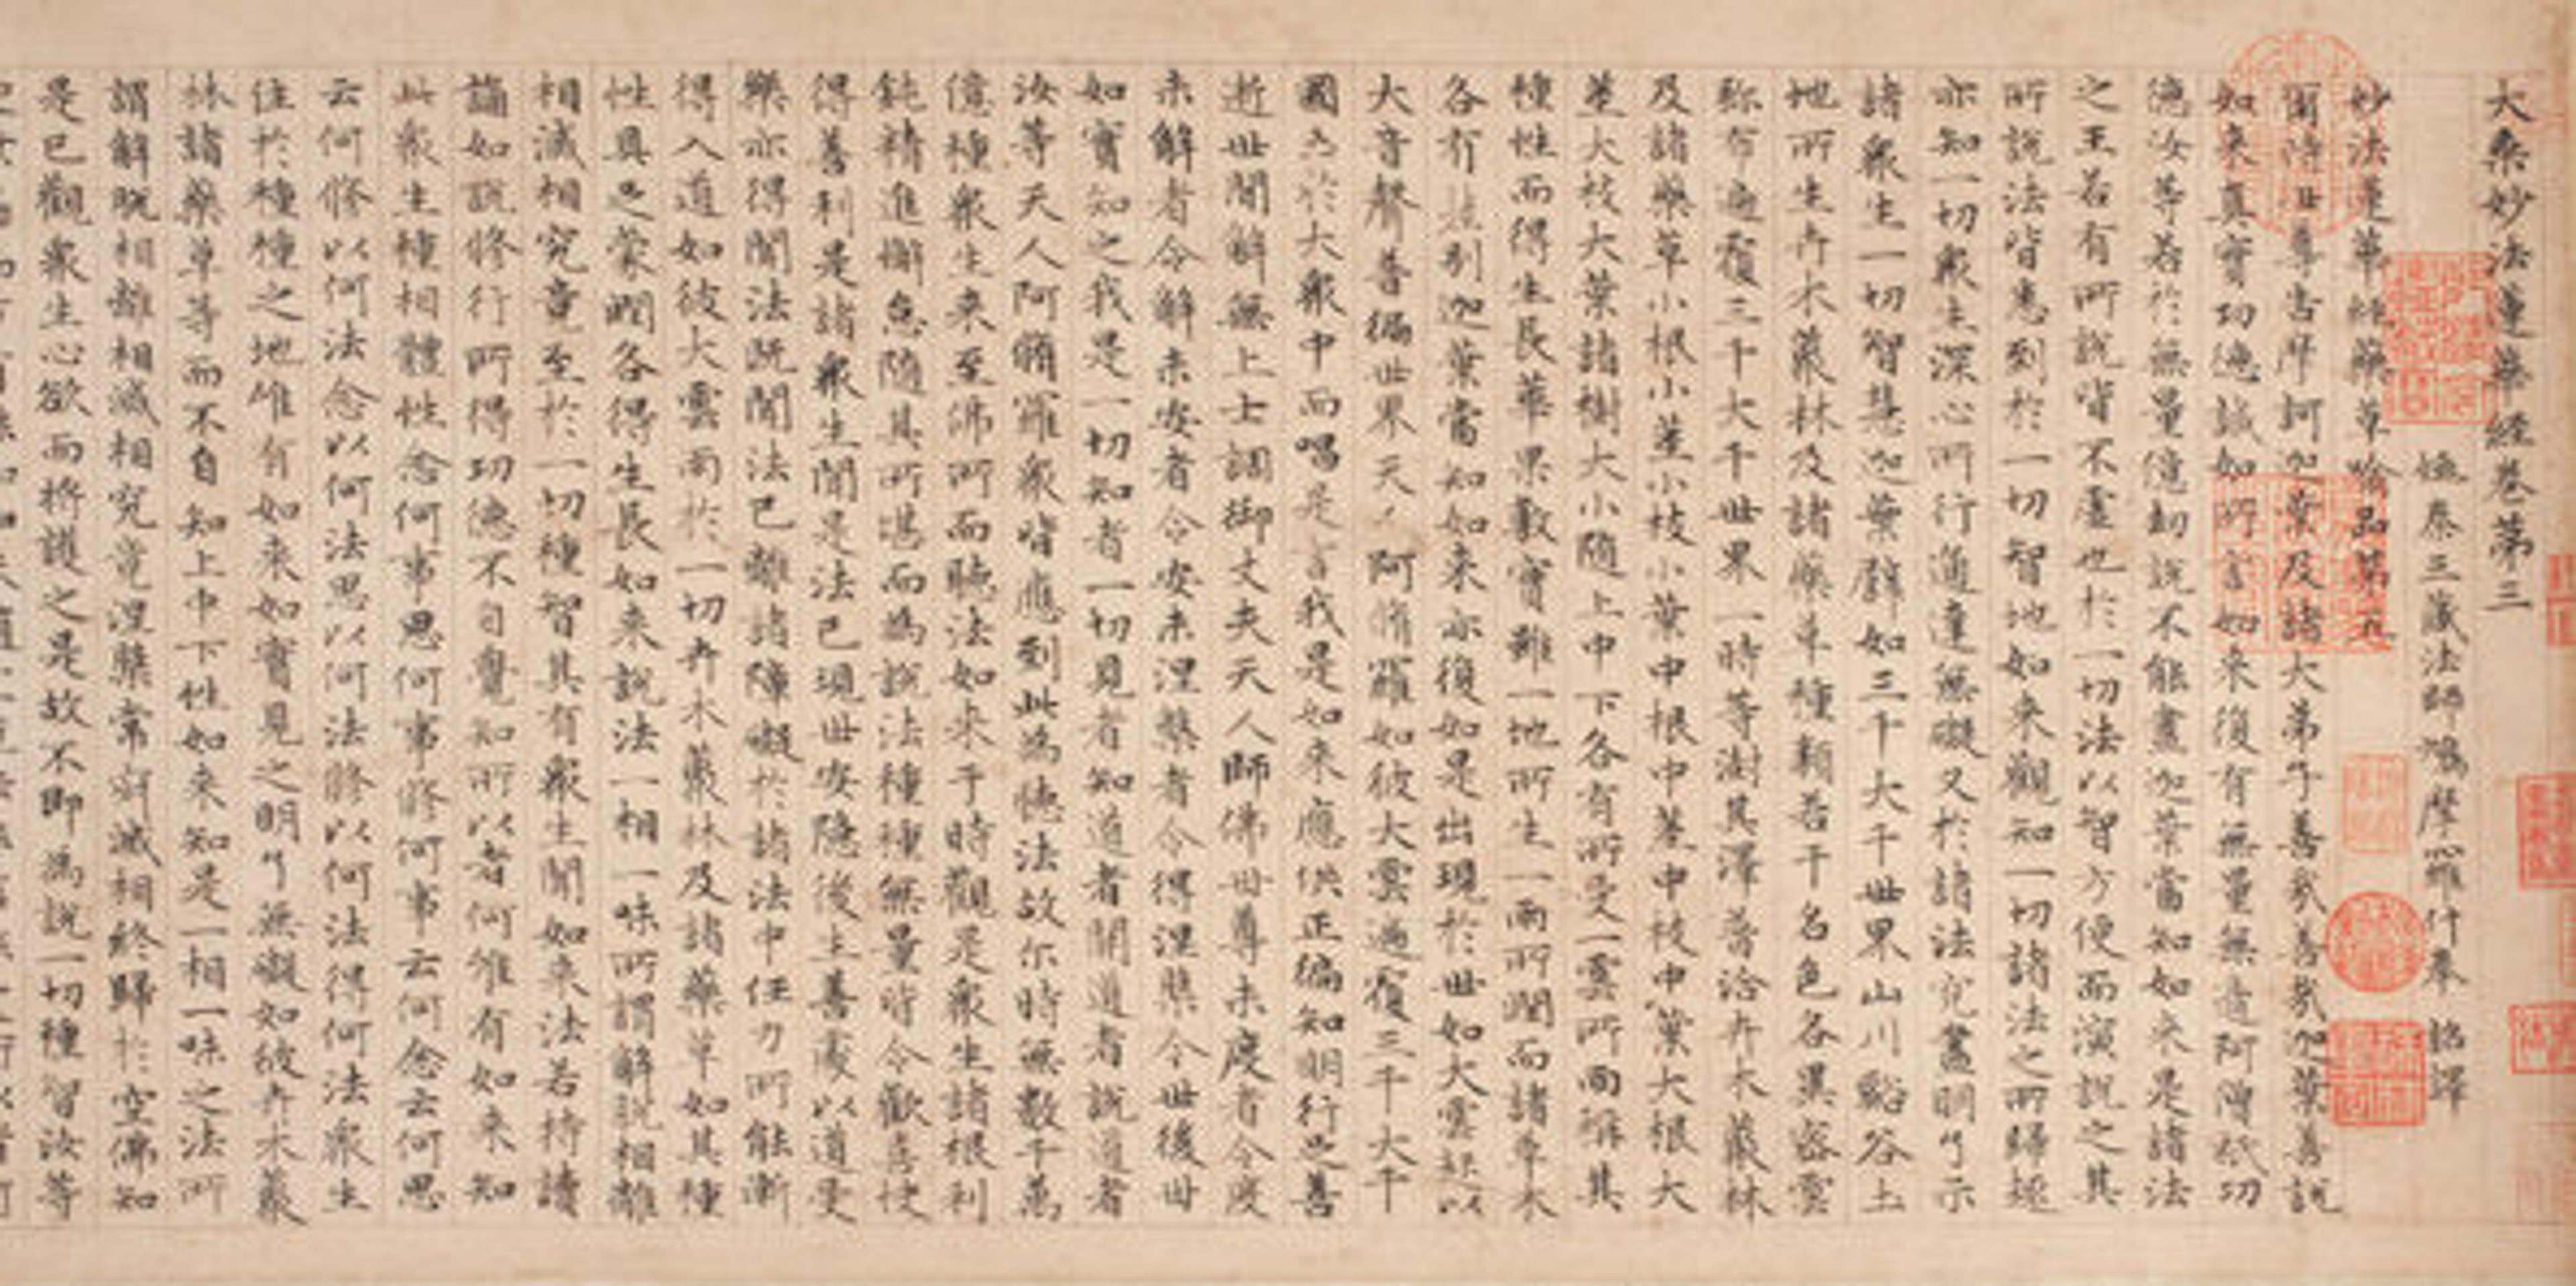 大乘妙法蓮華經卷第三
姚秦三藏法師鳩摩羅什奉詔譯
妙法蓮華經藥草喻品第五
爾時世尊告摩訶迦葉及諸大弟子善哉善哉迦葉善說
如來真實功德誠如所言如來復有無量無邊阿僧祇功
德汝等若於無量億劫說不能盡迦葉當知如來是諸法
之王若有所說皆不虛也於一切法以智方便而演說之其
所說法皆悉到於一切智地如來觀知一切諸法之所歸趣
亦知一切眾生深心所行通達無礙又於諸法究盡明了示
諸眾生一切智慧迦葉譬如三千大千世界山川谿谷土
地所生卉木叢林及諸藥草種類若干名色各異密雲
弥布遍覆三千大千世界一時等澍其澤普洽卉木叢林
及諸藥草小根小莖小枝小葉中根中莖中枝中葉大根大
莖大枝大葉諸樹大小隨上中下各有所受一雲所雨稱其
種性而得生長華果敷實雖一地所生一雨所潤而諸草木
各有差別迦葉當知如來亦復如是出現於世如大雲起以
大音聲普徧世界天人阿脩羅如彼大雲遍覆三千大千
國土於大眾中而唱是言我是如來應供正徧知明行足善
逝世間解無上士調御丈夫天人師佛世尊未度者令度
未解者令解未安者令安未涅槃者令得涅槃今世後世
如實知之我是一切知者一切見者知道者開道者說道者
汝等天人阿脩羅眾皆應到此為聽法故尒時無數千萬
億種眾生來至佛所而聽法如來于時觀是眾生諸根利
鈍精進懈怠隨其所堪而為說法種種無量皆令歡喜快
得善利是諸眾生聞是法已現世安隱後生善處以道受
樂亦得聞法既聞法已離諸障礙於諸法中任力所能漸
得入道如彼大雲雨於一切卉木叢林及諸藥草如其種
性具足蒙潤各得生長如來說法一相一味所謂解說相離
相滅相究竟至於一切種智其有眾生聞如來法若持讀
誦如說修行所得功德不自覺知所以者何唯有如來知
此眾生種相體性念何事思何事修何事云何念云何思
云何修以何法念以何法思以何法修以何法得何法眾生
住於種種之地唯有如來如實見之明了無礙如彼卉木叢
林諸藥草等而不自知上中下性如來知是一相一味之法所
謂解脫相離相滅相究竟涅槃常寂滅相終歸於空佛知
是已觀眾生心欲而將護之是故不即為說一切種智汝等